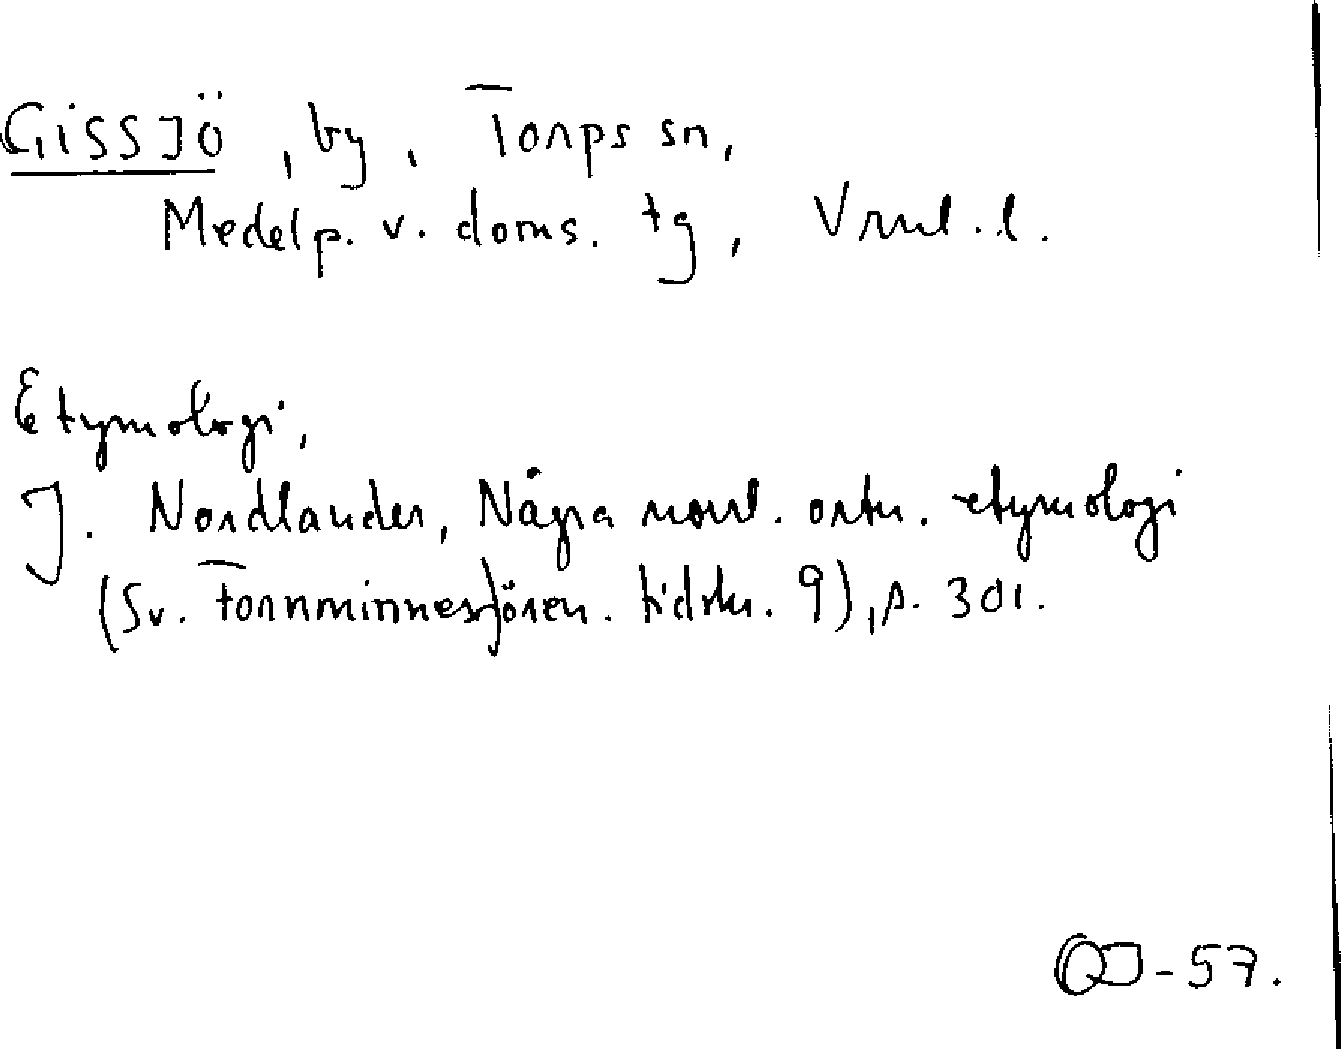 Gissjö, by, Torps sn,
Medelp. v. doms. tg, Vnrl. l.
Etymologi,
J. Nordlander, Några norrl. ortn. etymologi
(Sv. Fornminnesfören. tidskr. 9), s. 301.
-57.